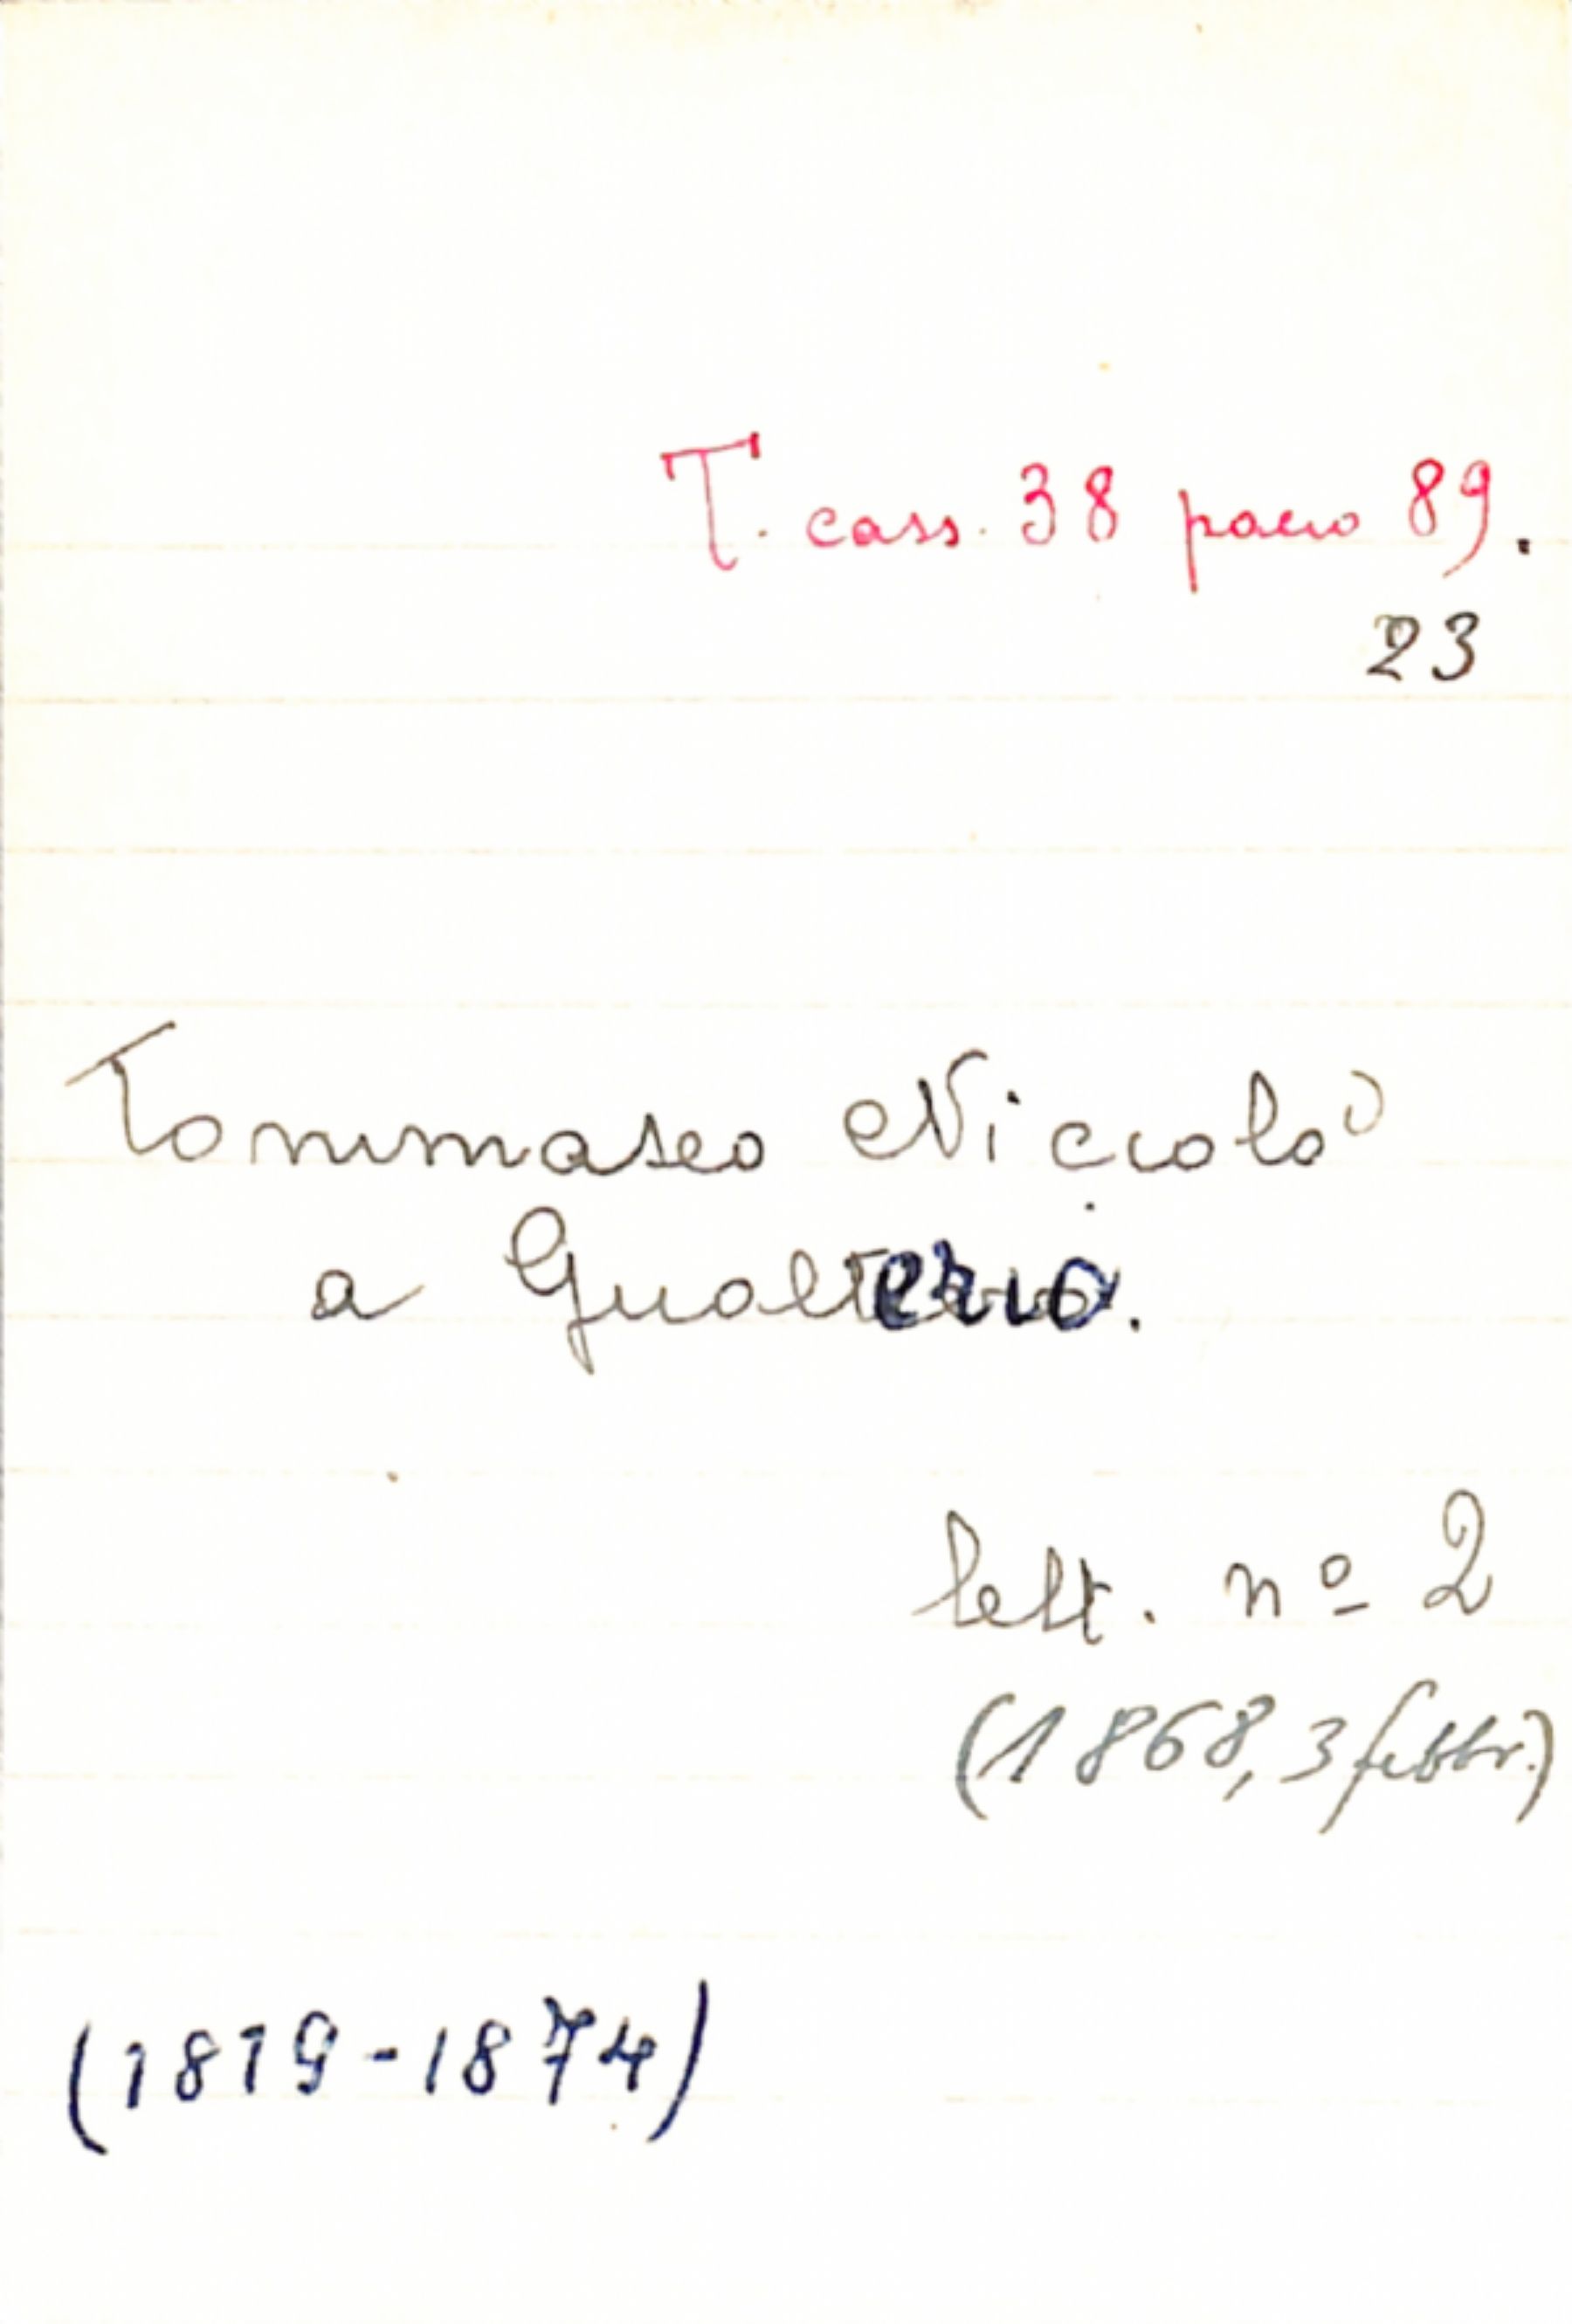 T. cass. 38 pacco 89.
23
Tommaseo Niccolò
a Gualterio.
lett. nº 2
(1868, 3 febbr.)
(1819-1874)